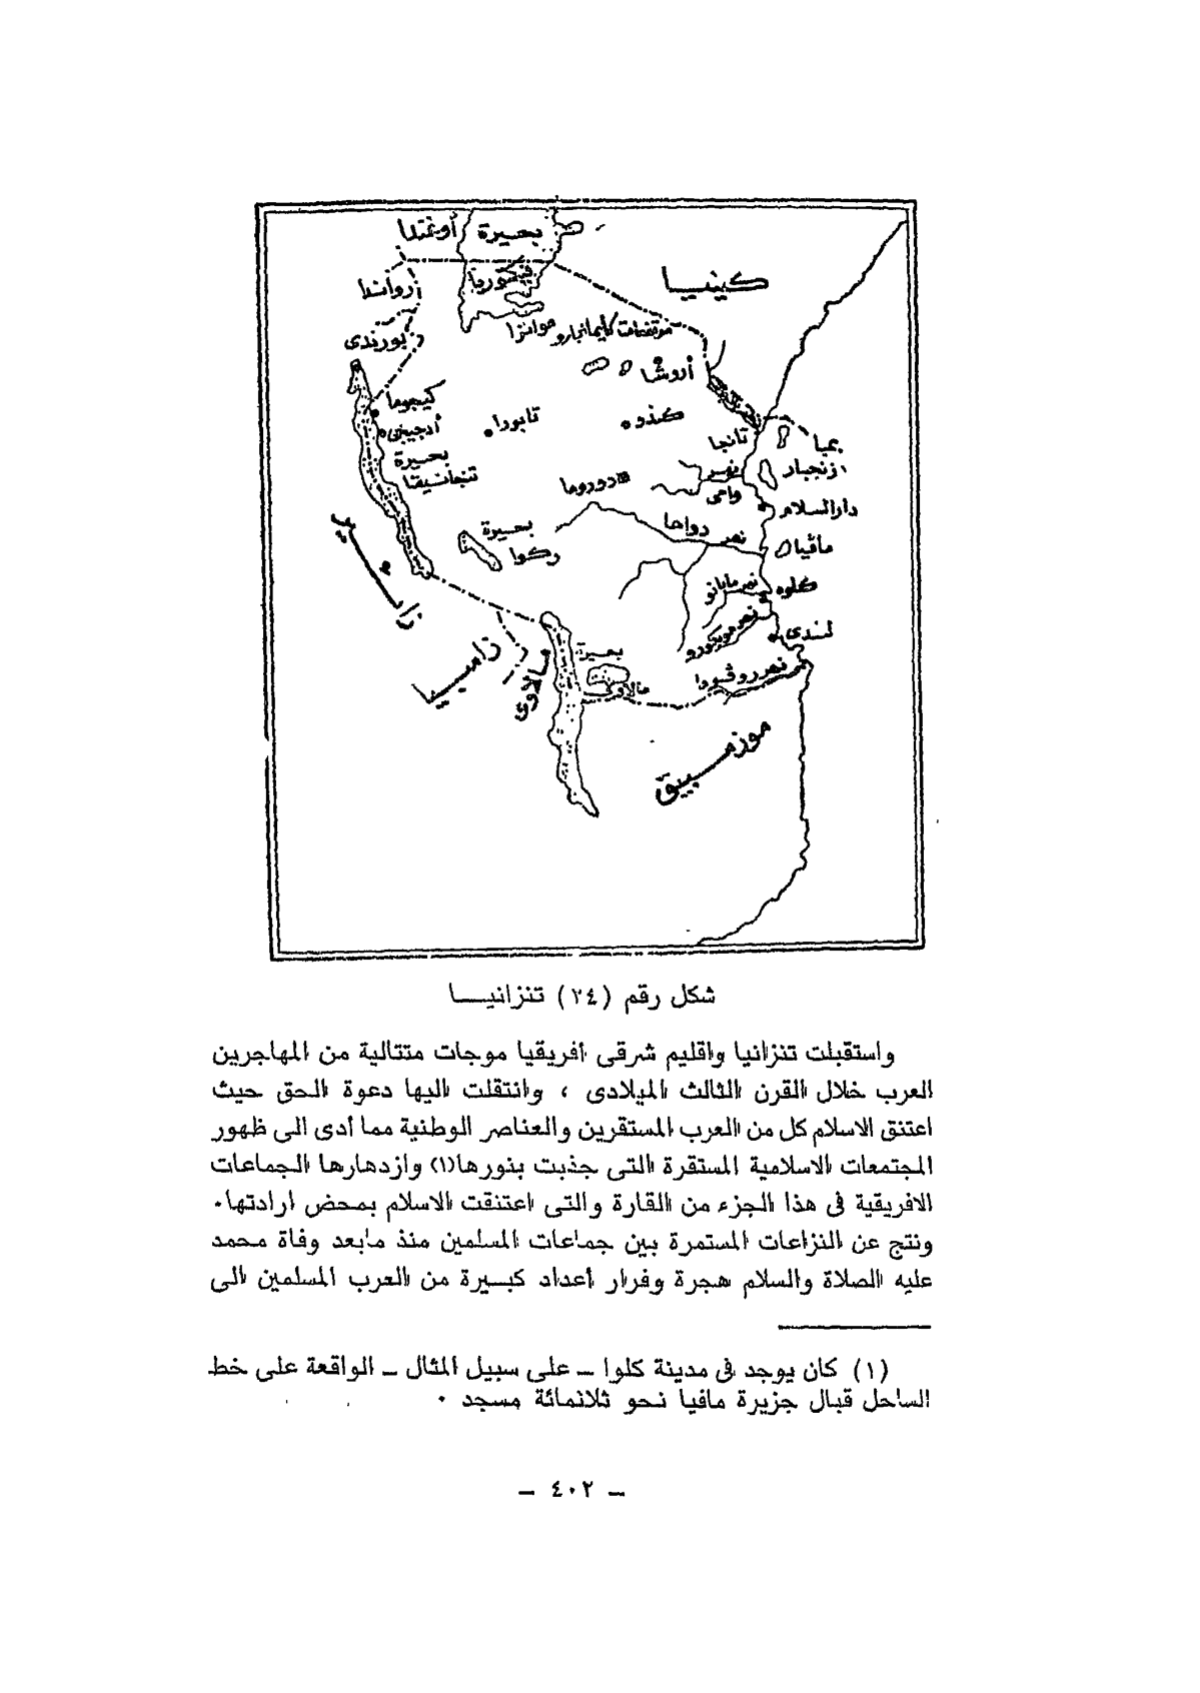 أوغندا
بحيرة
فيكتوريا
كينيا
رواندا
بورندى
موانزا
مرتفعات كليمانجارو
أروشا
كيجوما
أدجيجى
تابورا
كندو
تانجا
بمبا
زنجبار
بحيرة
تنجانيقا
دودوما
نهر
وامى
دارالسلام
نهر دواها
مافيا
بحيرة
ركوا
زائير
كلوه
لندى
زامبيا
مالاوى
بحيرة
مالاوى
نهر روڤوما
موزمبيق
شكل رقم (٢٤) تنزانيــا
واستقبلت تنزانيا واقليم شرقى أفريقيا موجات متتالية من المهاجرين
العرب خلال القرن الثالث الميلادى ، وانتقلت اليها دعوة الحق حيث
اعتنق الاسلام كل من العرب المستقرين والعناصر الوطنية مما أدى الى ظهور
المجتمعات الاسلامية المستقرة التى جذبت بنورها(١) وازدهارها الجماعات
الافريقية فى هذا الجزء من القارة والتى اعتنقت الاسلام بمحض ارادتها.
ونتج عن النزاعات المستمرة بين جماعات المسلمين منذ مابعد وفاة محمد
عليه الصلاة والسلام هجرة وفرار أعداد كبيرة من العرب المسلمين الى
(١) كان يوجد فى مدينة كلوا – على سبيل المثال – الواقعة على خط
الساحل قبال جزيرة مافيا نحو ثلانمائة مسجد .
– ٤٠٢ –